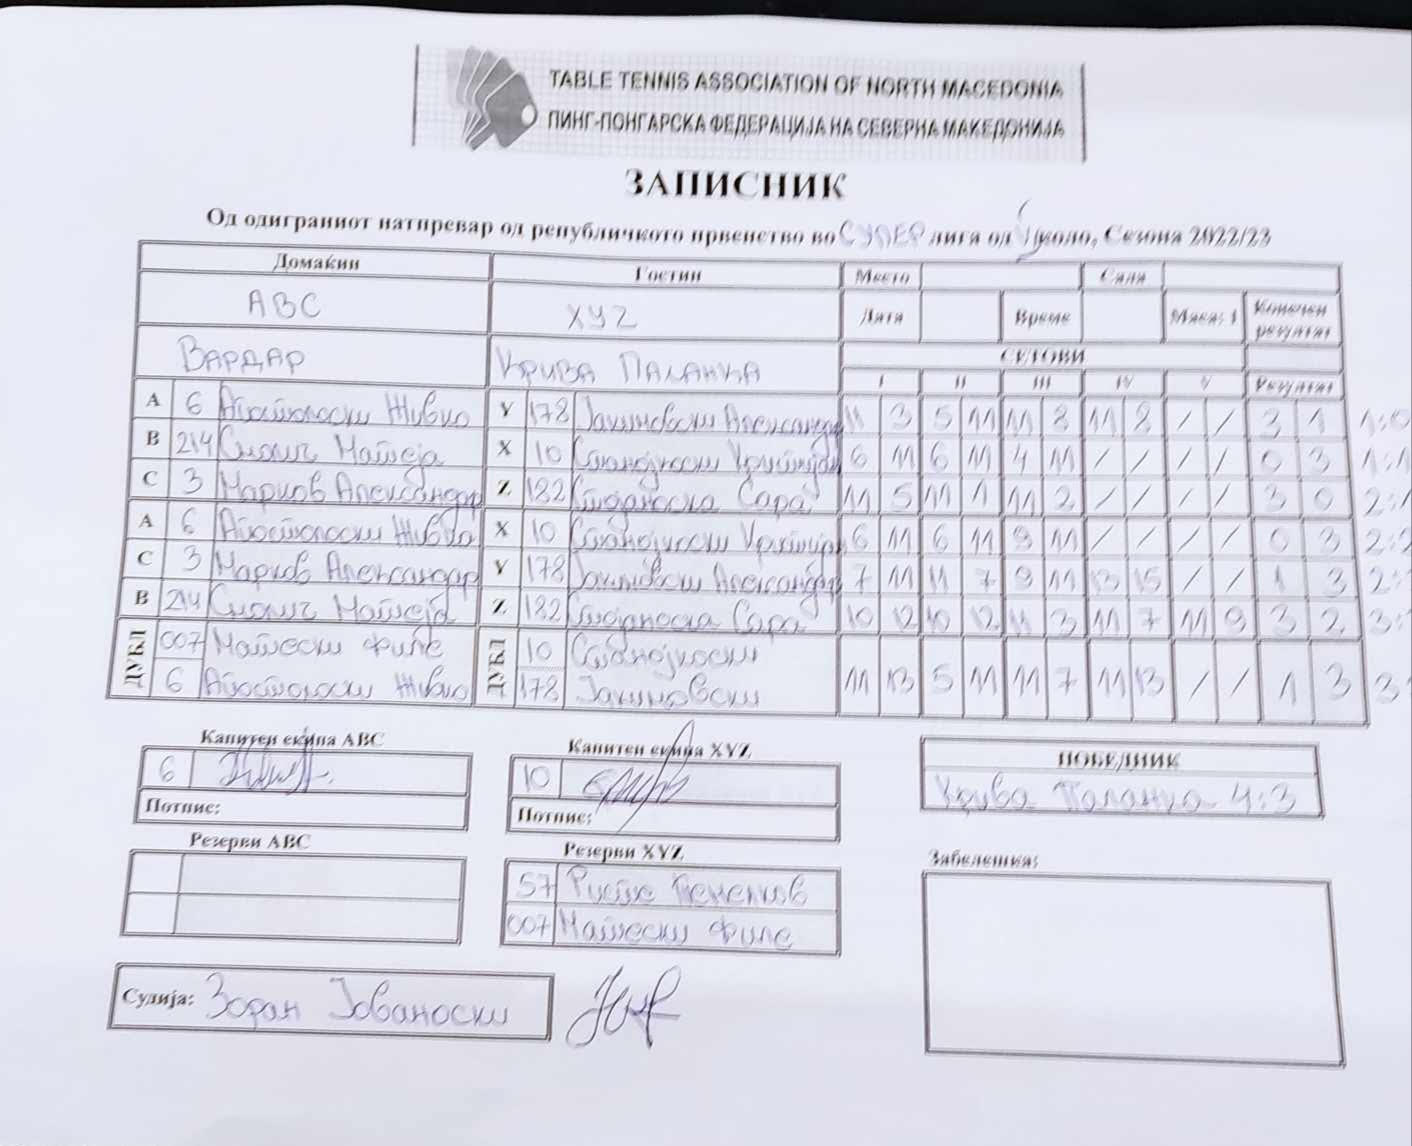 TABLE TENNIS ASSOCIATION OF NORTH MACEDONIA
ПИНГ-ПОНГАРСКА ФЕДЕРАЦИЈА НА СЕВЕРНА МАКЕДОНИЈА
ЗАПИСНИК
Од одиграниот натпревар од републичкото првенство во СУПЕР лига од коло, Сезона 2022/23
Домаќин Гостин Место Сала
ABC XYZ Дата Време Маса: 1 Конечен резултат
ВАРДАР КРИВА ПАЛАНКА СЕТОВИ
I II III IV V Резултат
A 6 Апостолоски Живко Y 178 Јакимовски Александар 11 3 5 11 11 8 11 8 / / 3 1 1:0
B 214 Смолиќ Матеја X 10 Стanoјкоски Кристијан 6 11 6 11 4 11 / / / / 0 3 1:1
C 3 Марков Александар Z 182 Стојаноска Сара 11 5 11 1 11 2 / / / / 3 0 2:1
A 6 Апостолоски Живко X 10 Станојкоски Кристијан 6 11 6 11 9 11 / / / / 0 3 2:2
C 3 Марков Александар Y 178 Јакимовски Александар 7 11 11 7 9 11 13 15 / / 1 3 2:
B 214 Смолиќ Матеја Z 182 Стојаноска Сара 10 12 10 12 11 3 11 7 11 9 3 2 3:
ДУБЛ 007 Матески Филе ДУБЛ 10 Станојкоски
6 Апостолоски Живко 178 Јакимовски 11 13 5 11 11 7 11 13 / / 1 3 3
Капитен екипа ABC Капитен екипа XYZ ПОБЕДНИК
6 10 Крива Паланка 4:3
Потпис: Потпис:
Резерви ABC Резерви XYZ Забелешка:
57 Ристе
007 Матески Филе
Судија: Зоран Јованоски